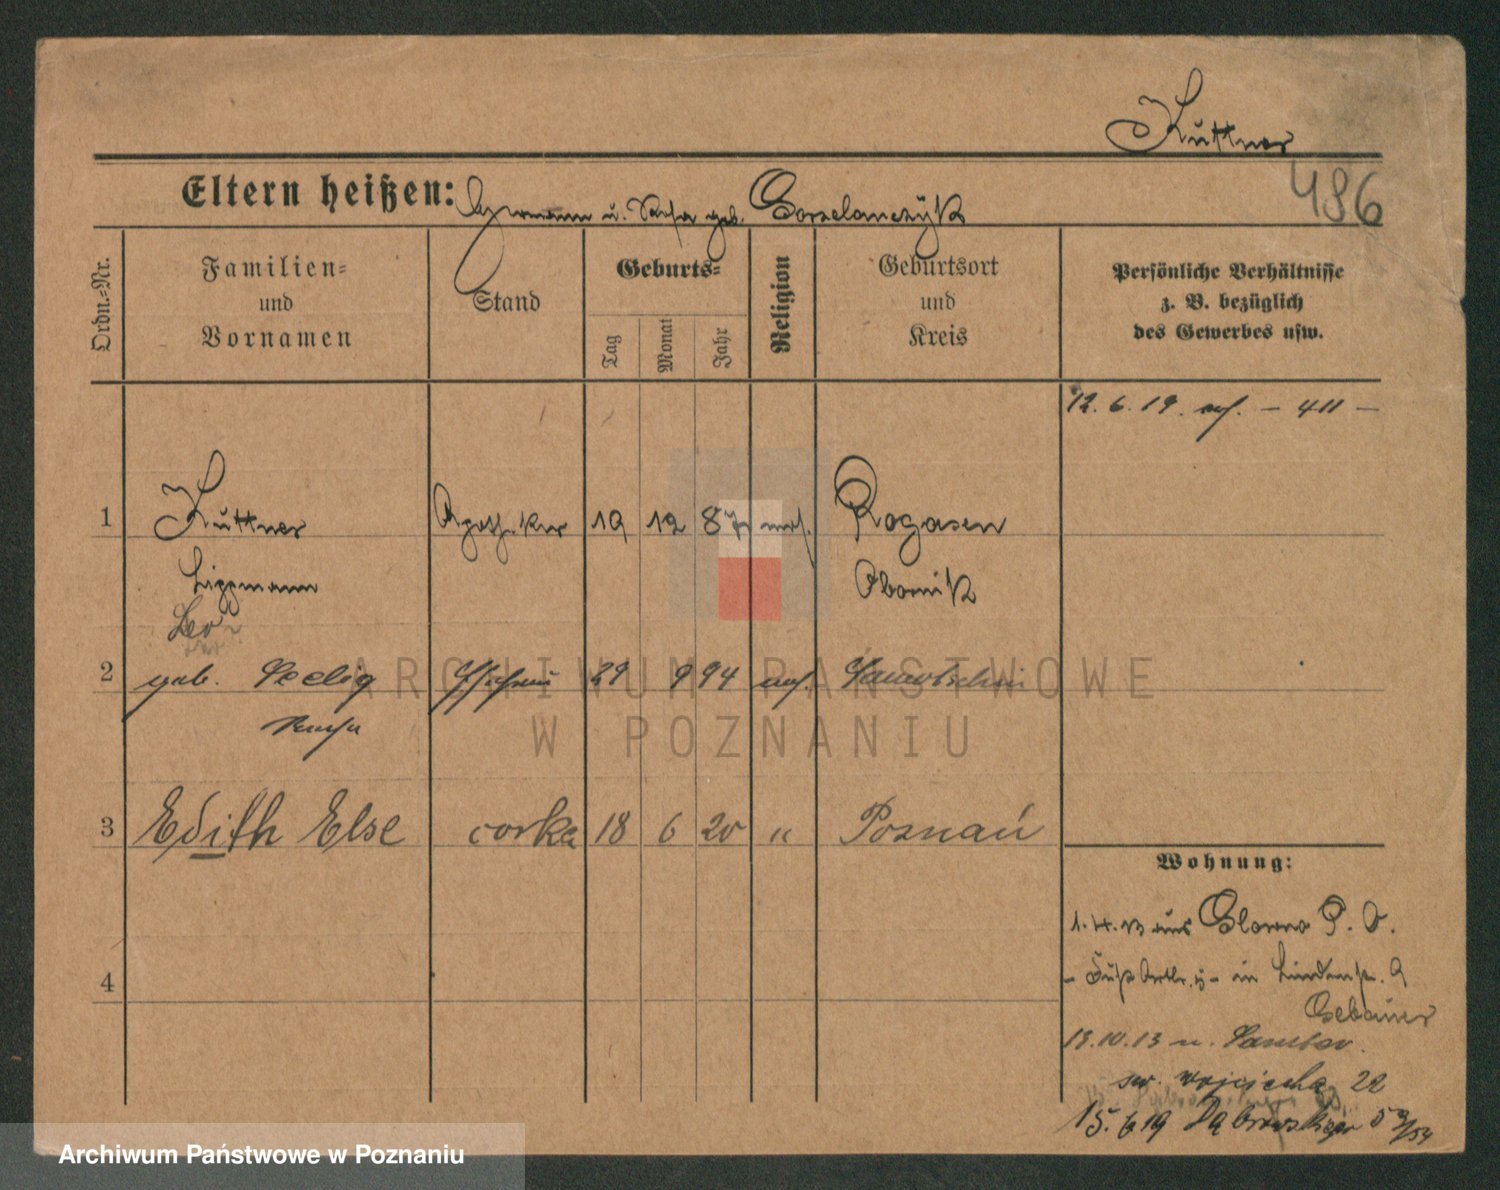 Kuttner
Eltern heißen: Hermann u. Rosa geb. Gorzelanczyk
486
Ordn.-Nr.
Familien-
und
Vornamen
Stand
Geburts-
Tag
Monat
Jahr
Religion
Geburtsort
und
Kreis
Persönliche Verhältnisse
z. B. bezüglich
des Gewerbes usw.
12. 6. 19. – 411 –
1 Kuttner Apotheker 19 12 87 mos. Rogasen
Lippmann Obornik
Leo
2 geb. Seelig Ehefrau 29 9 94 mos.
3 Edith Else corka 18 6 20 " Poznań
Wohnung:
1.4.13 aus P. O.
in Lindenstr. 9
Gebauer
4
13.10.13 n. Samter
św. Wojciecha 22
15. 6 19 Dąbrowskiego
ARCHIWUM PAŃSTWOWE
W POZNANIU
Archiwum Państwowe w Poznaniu